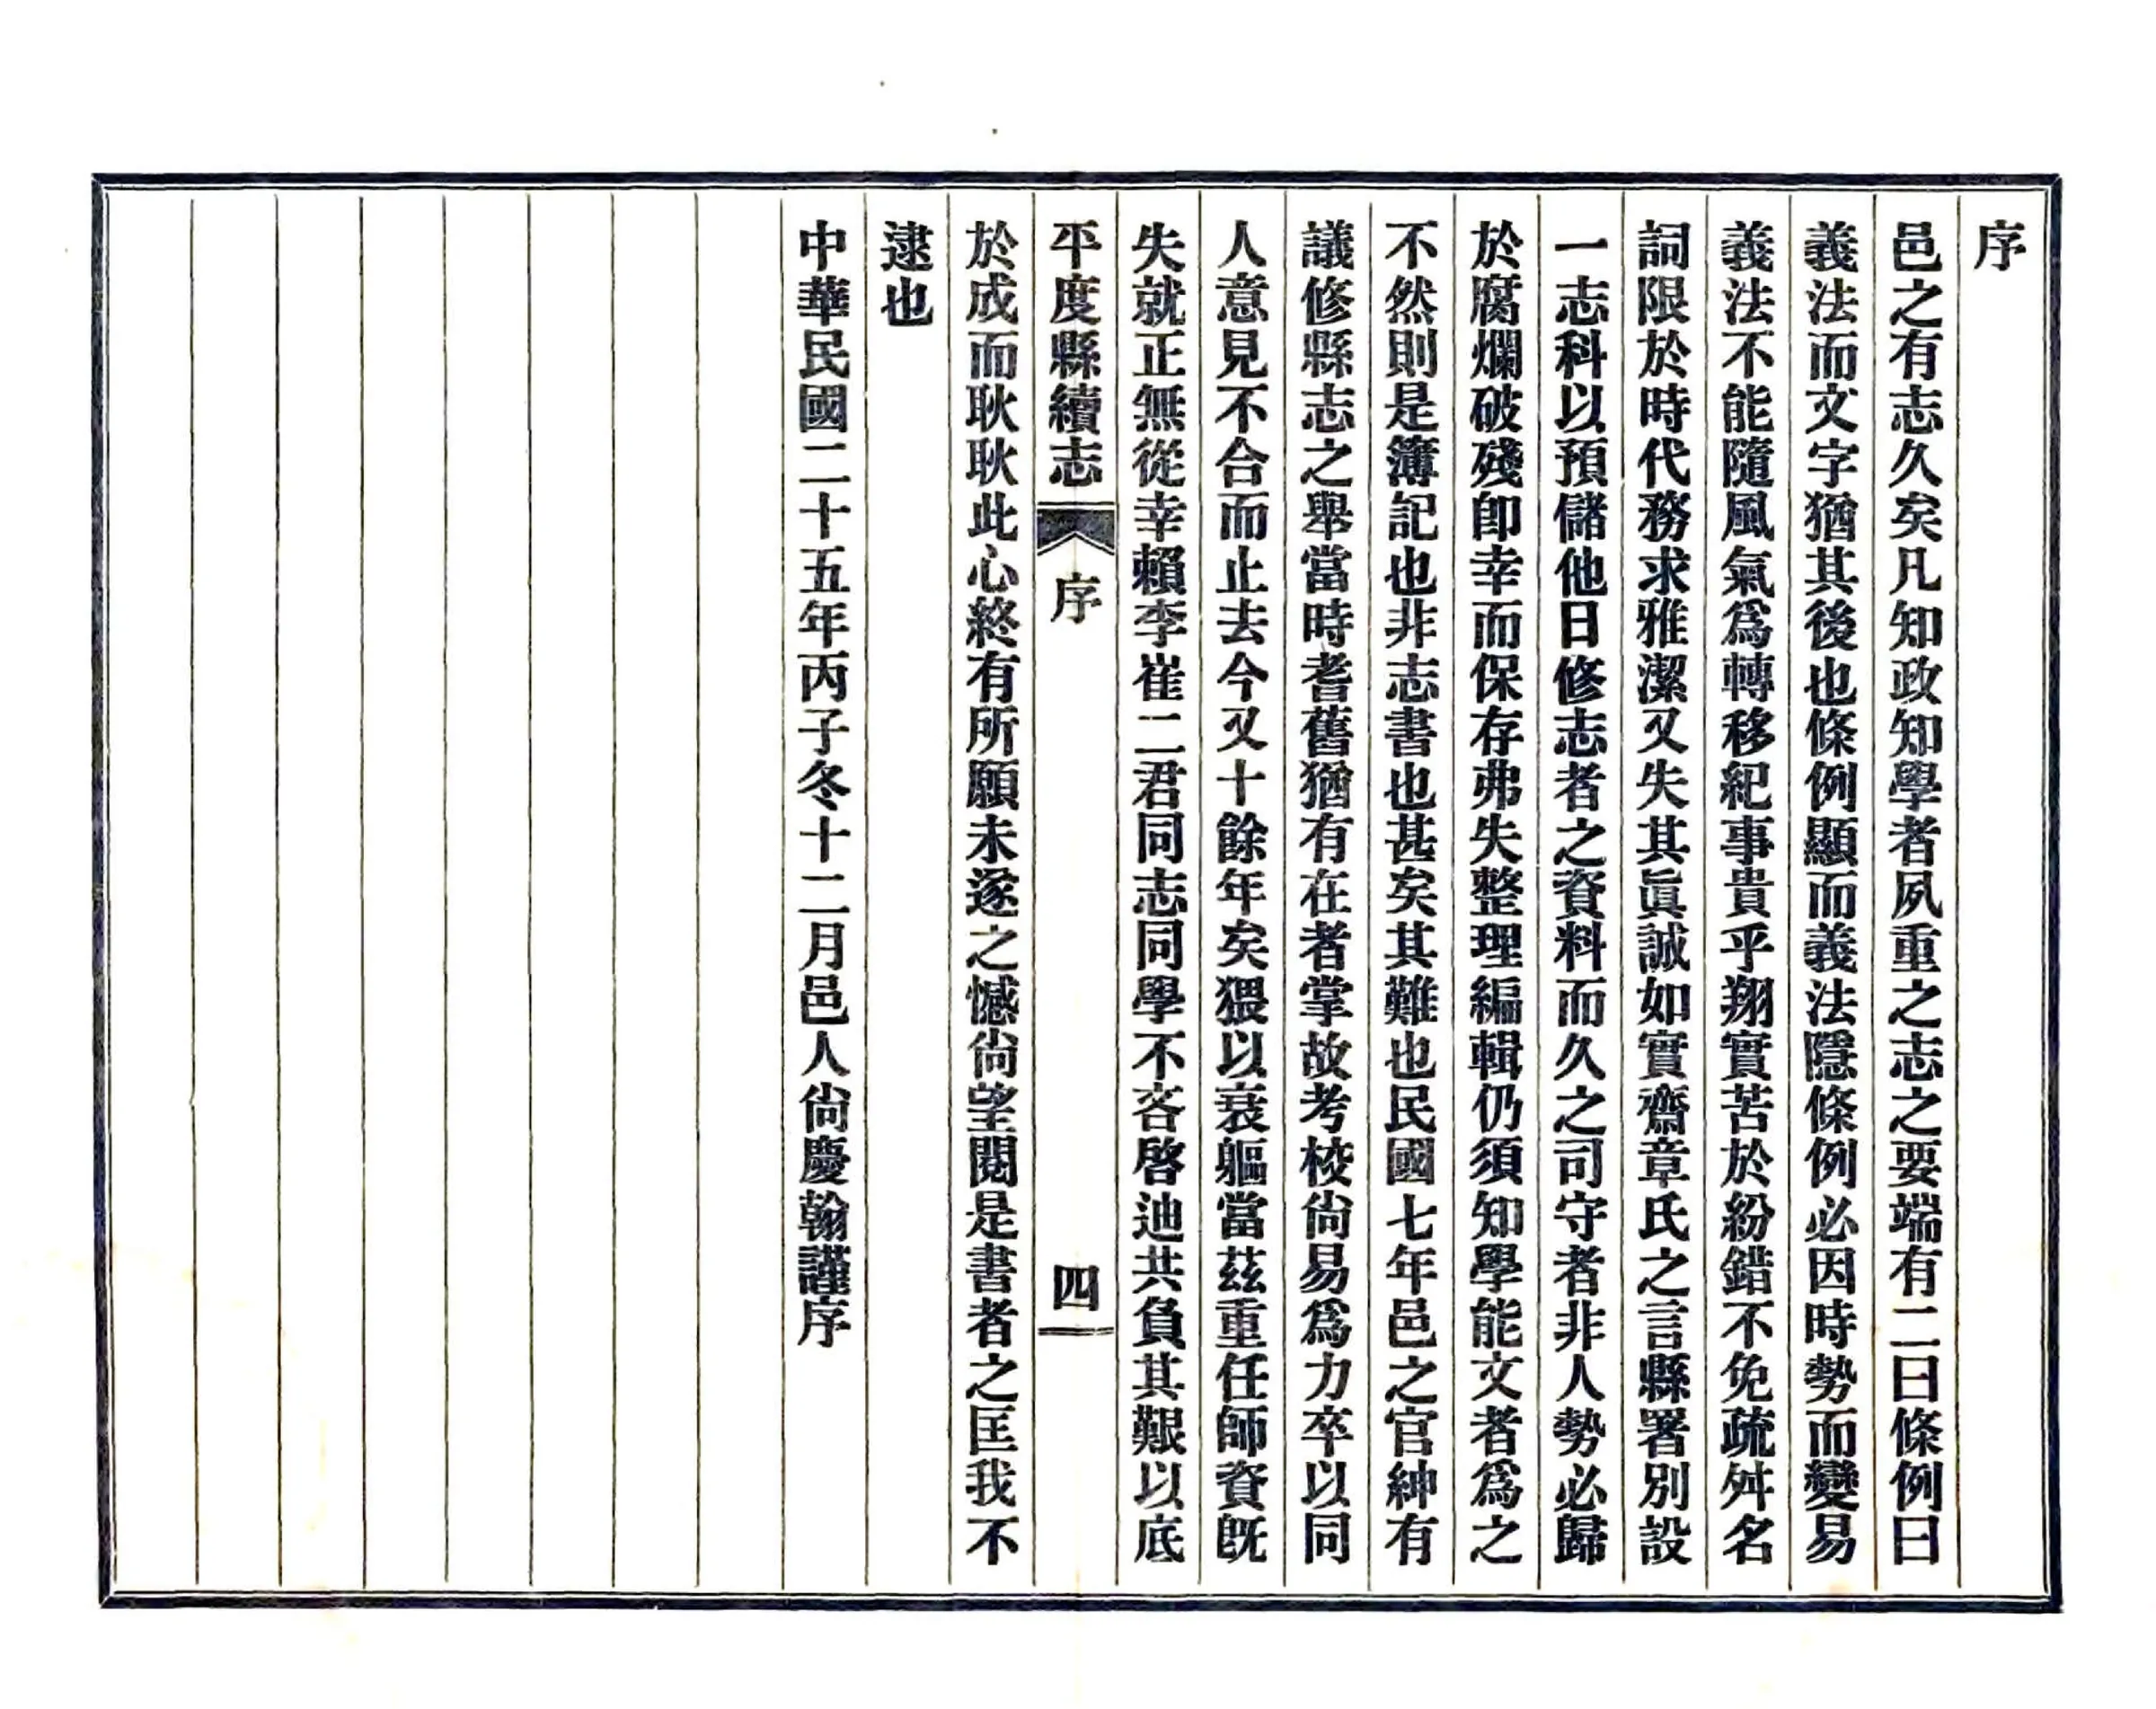 序
邑之有志久矣凡知政知學者夙重之志之要端有二曰條例曰
義法而文字猶其後也條例顯而義法隱條例必因時勢而變易
義法不能隨風氣爲轉移紀事貴乎翔實苦於紛錯不免疏舛名
詞限於時代務求雅潔又失其眞誠如實齋章氏之言縣署別設
一志科以預儲他日修志者之資料而久之司守者非人勢必歸
於腐爛破殘卽幸而保存弗失整理編輯仍須知學能文者爲之
不然則是簿記也非志書也甚矣其難也民國七年邑之官紳有
議修縣志之舉當時耆舊猶有在者掌故考校尙易爲力卒以同
人意見不合而止去今又十餘年矣猥以衰軀當茲重任師資旣
失就正無從幸賴李崔二君同志同學不吝啓迪共負其艱以底
平度縣續志 序 四
於成而耿耿此心終有所願未遂之憾尙望閱是書者之匡我不
逮也
中華民國二十五年丙子冬十二月邑人尙慶翰謹序